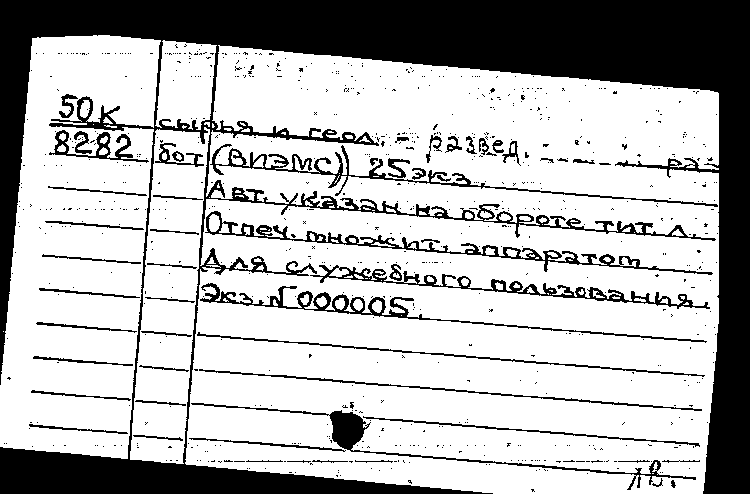 50К
8282
сырья и геол. - развед. ра-
бот (ВИЭМС)) 25экз.
Авт. указан на обороте тит. л.
Отпеч. множит. аппаратом.
Для служебного пользования.
Экз. № 000005.